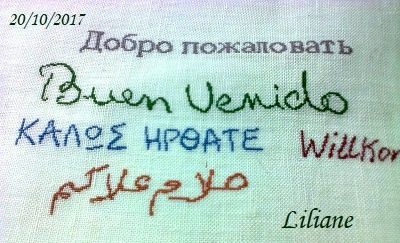 20/10/2017
Добро пожаловать
Buen Venido
ΚΑΛΩΣ ΗΡΘΑΤΕ WillKor
صلام علاكم
Liliane